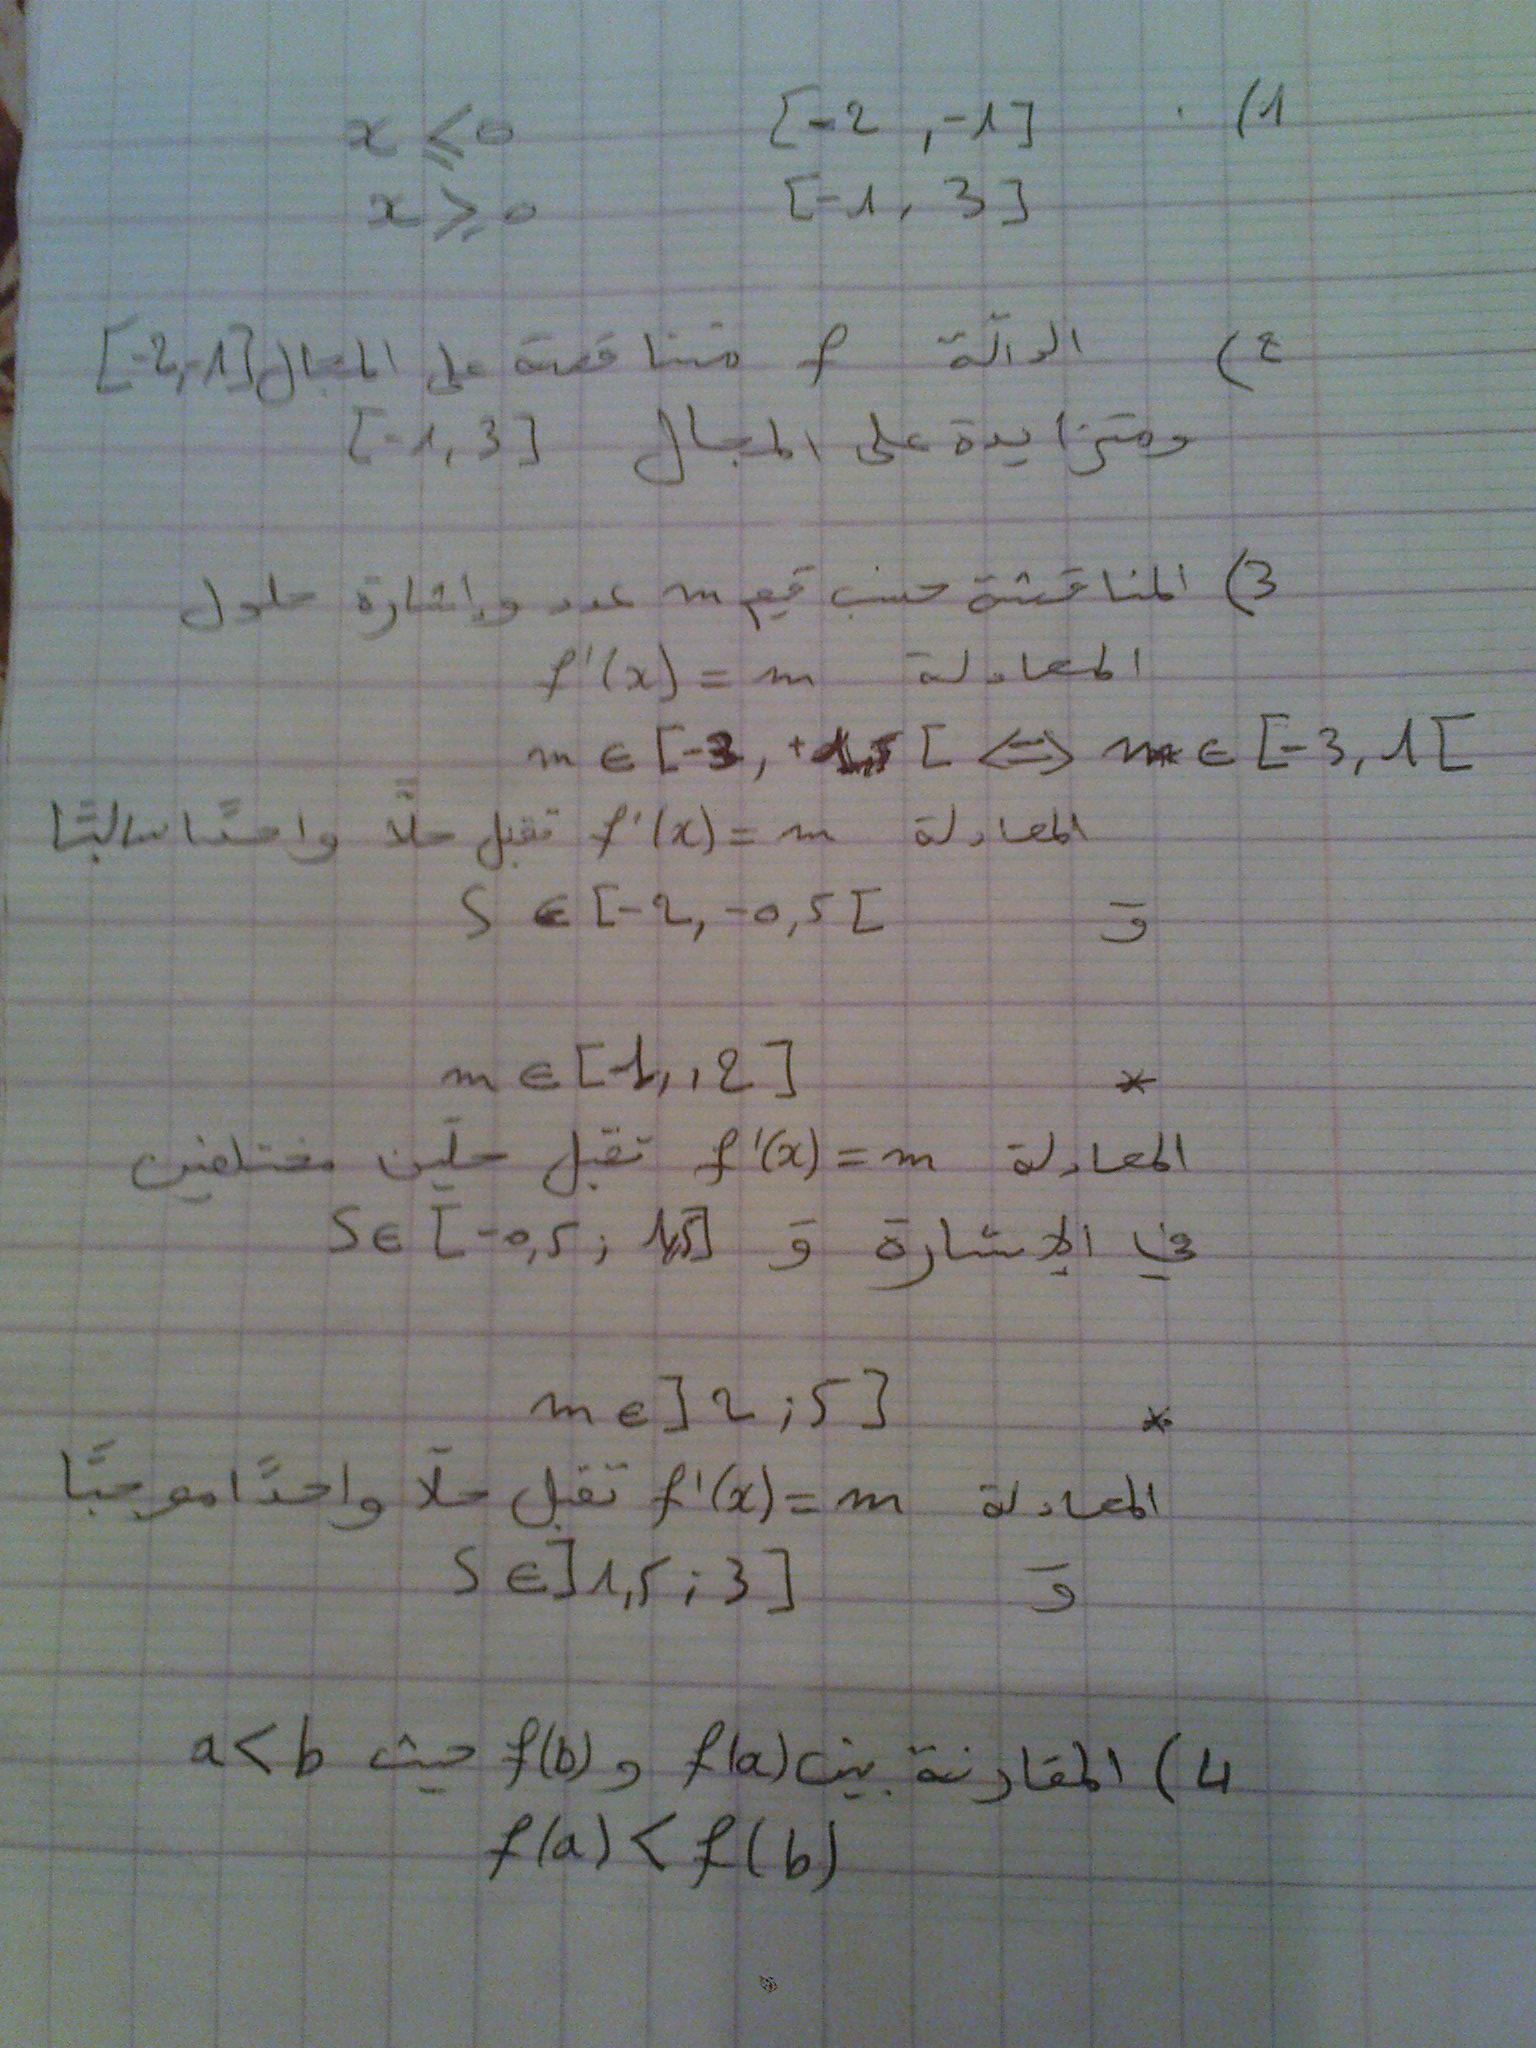 (1 [-2 , -1] x ⩽ 0
[-1 , 3] x ⩾ 0
(2 الدالّة f متناقصة على المجال [-2,-1]
ومتزايدة على المجال [-1, 3]
(3 المناقشة حسب قيم m عدد وإشارة حلول
المعادلة f'(x) = m
m ∈ [-3, 1[ ⟺ m ∈ [-3, +1,5 [
المعادلة f'(x) = m تقبل حلّاً واحدًا سالبًا
وَ S ∈ [-2, -0,5 [
* m ∈ [-1, , 2]
المعادلة f'(x) = m تقبل حلّين مختلفين
في الإشارة وَ S ∈ [-0,5 ; 1,5]
* m ∈ ] 2 ; 5 ]
المعادلة f'(x) = m تقبل حلّا واحدًا موجبًا
وَ S ∈ ] 1,5 ; 3 ]
(4 المقارنة بين f(a) و f(b) حيث a < b
f(a) < f(b)